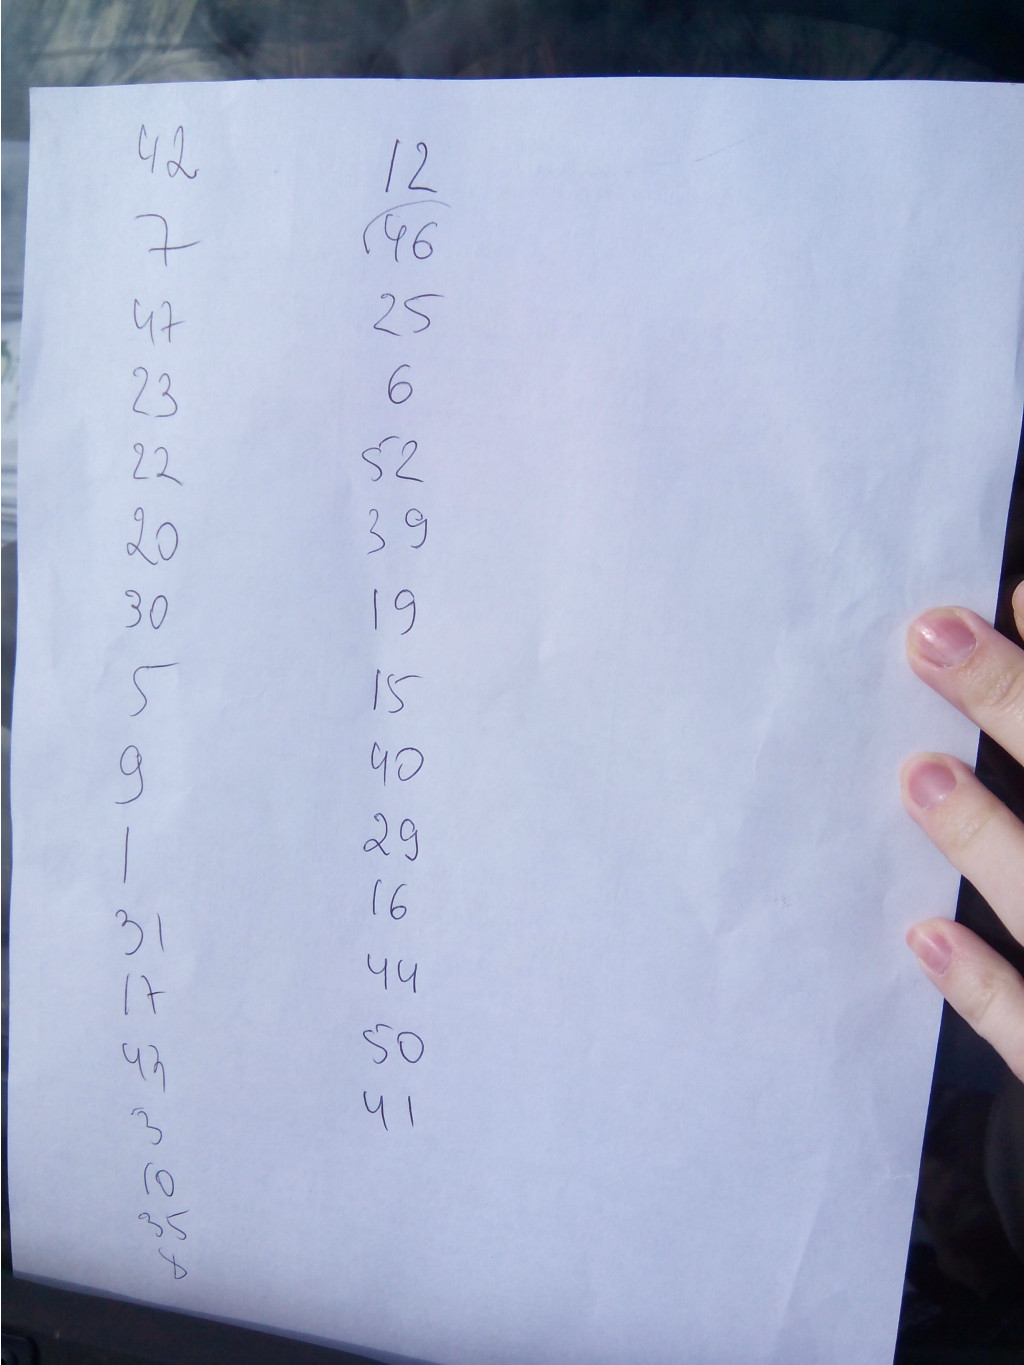 42
7
47
23
22
20
30
5
9
1
31
17
43
3
10
35
8
12
46
25
6
52
39
19
15
40
29
16
44
50
41